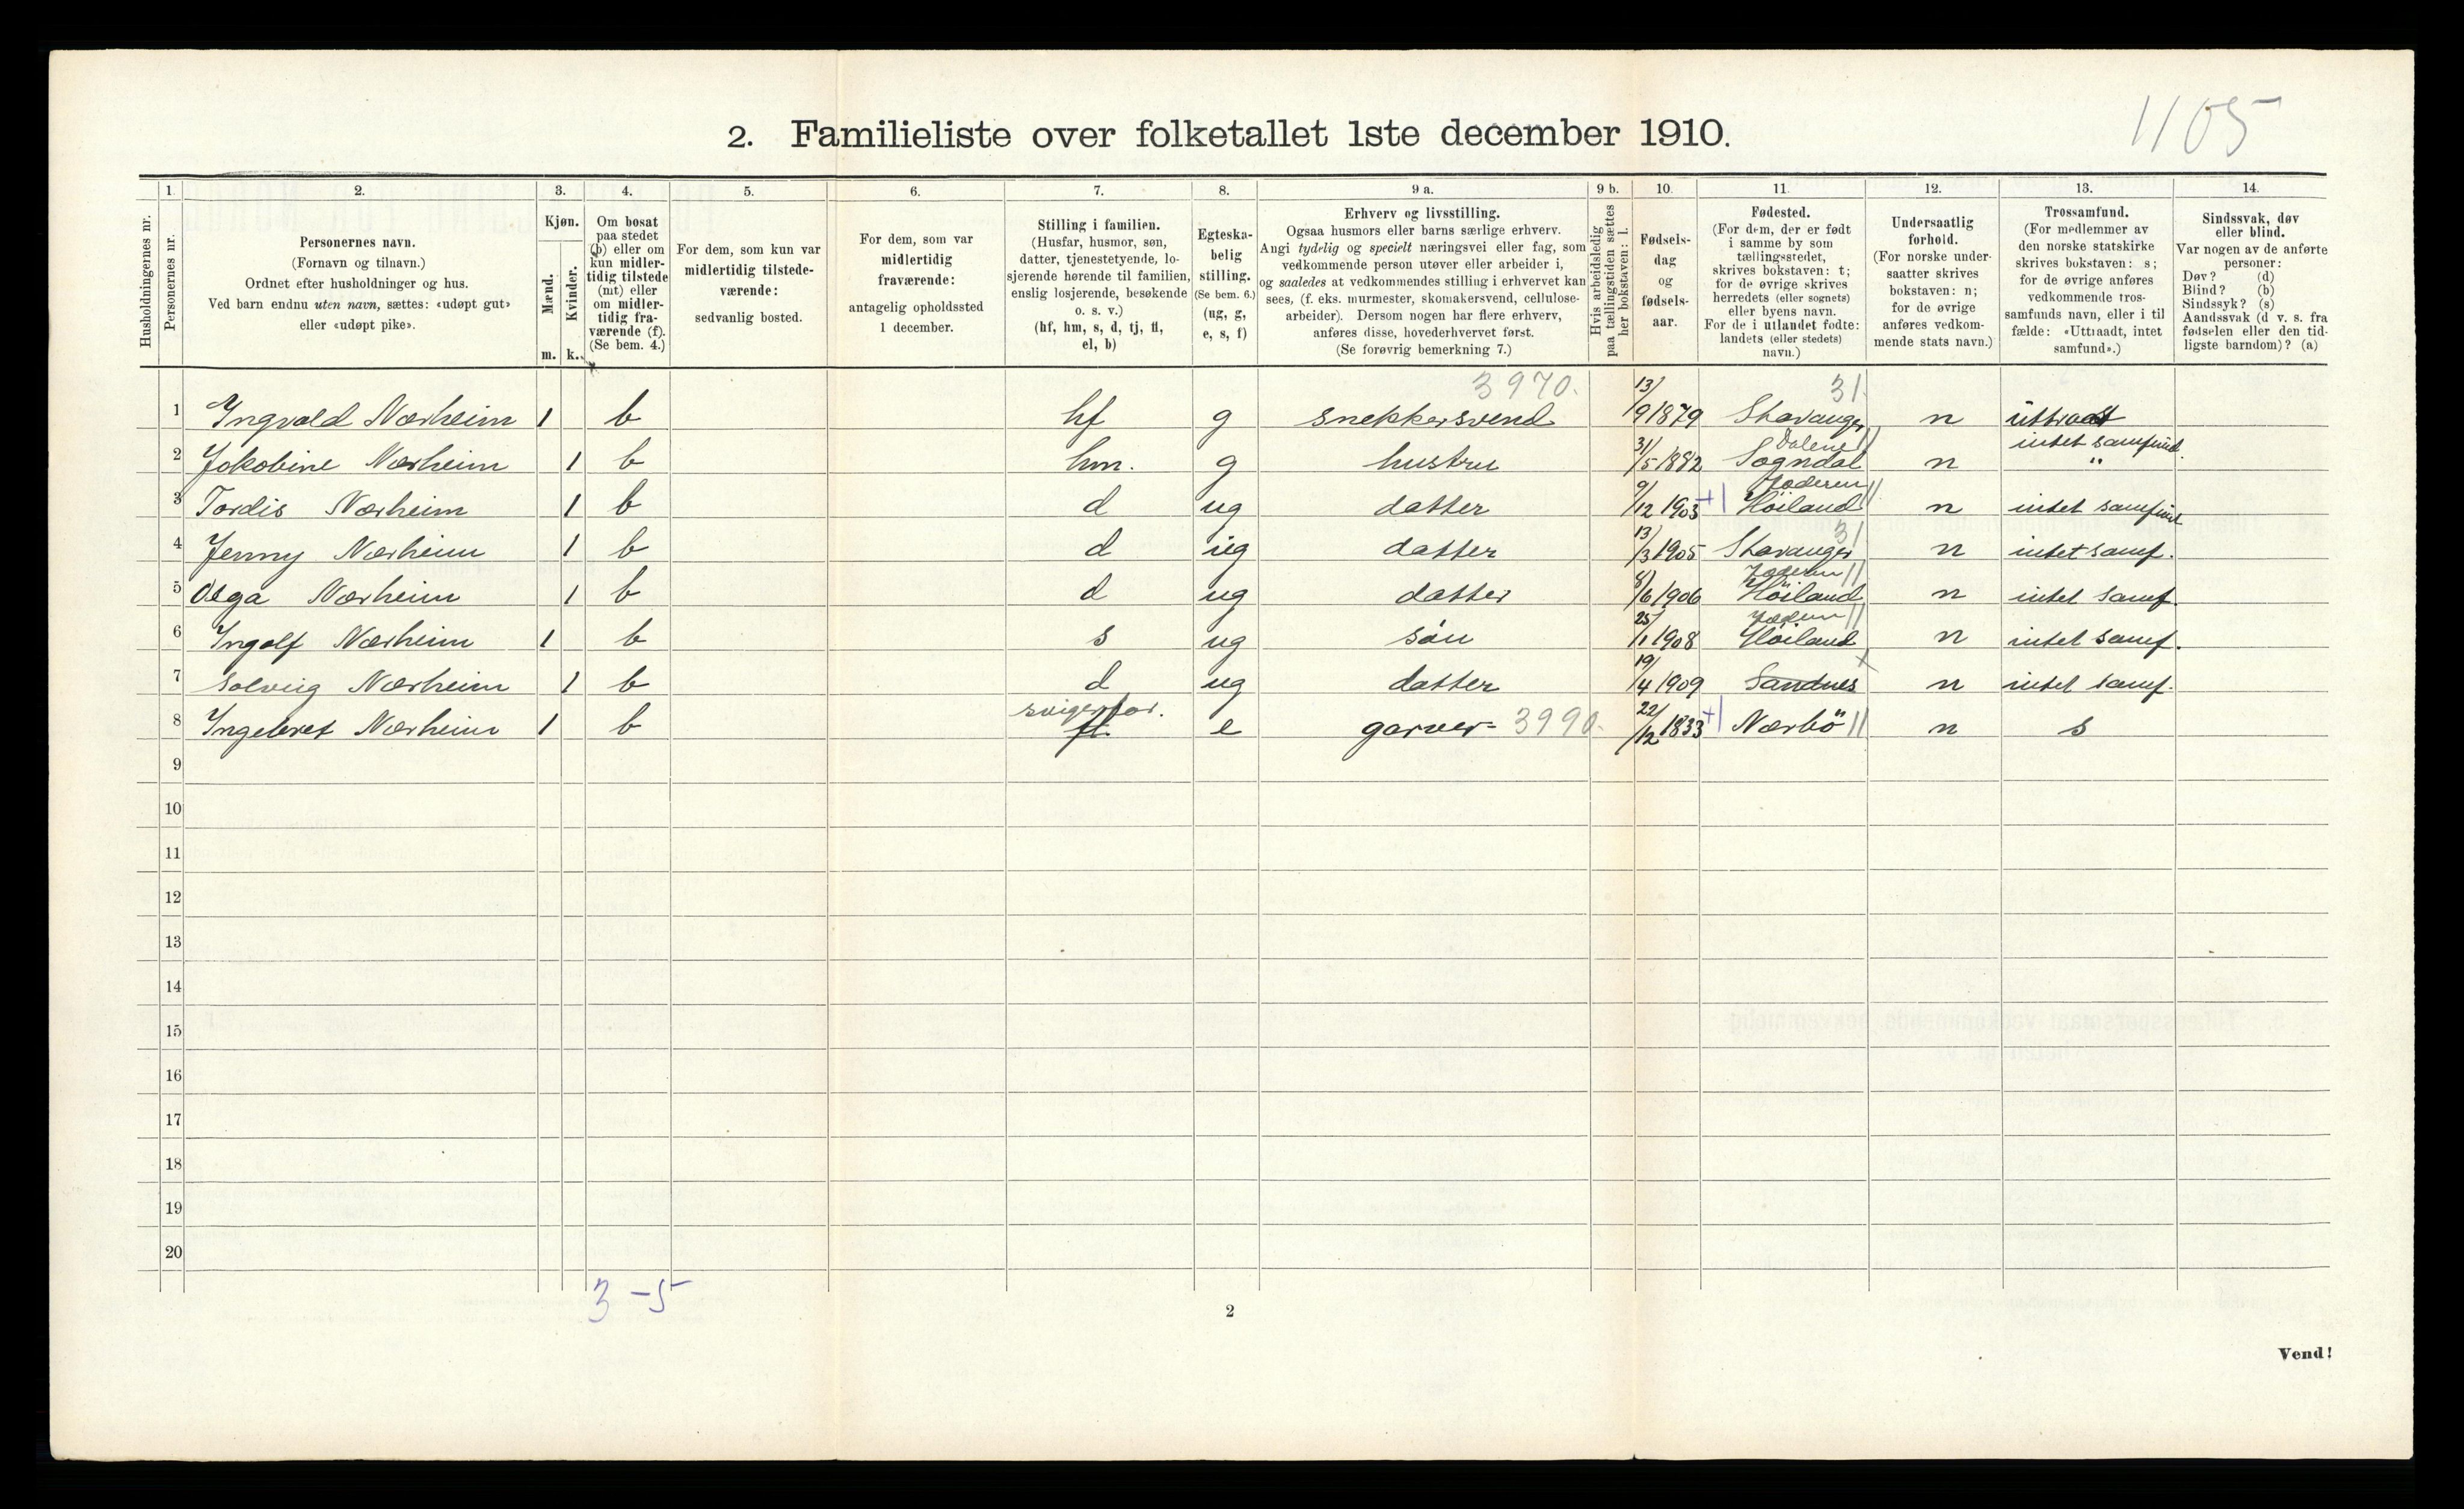 1105
2. Familieliste over folketallet 1ste december 1910.
Husholdningernes nr.
1. 2. 3. 4. 5. 6. 7. 8. 9 a. 9 b. 10. 11. 12. 13. 14.
Personernes nr.
Personernes navn.
(Fornavn og tilnavn.)
Ordnet efter husholdninger og hus.
Ved barn endnu uten navn, sættes: «udøpt gut»
eller «udøpt pike».
Kjøn.
Mænd.
Kvinder.
m. k.
Om bosat
paa stedet
(b) eller om
kun midler-
tidig tilstede
(mt) eller
om midler-
tidig fra-
værende (f).
(Se bem. 4.)
For dem, som kun var
midlertidig tilstede-
værende:
sedvanlig bosted.
For dem, som var
midlertidig
fraværende:
antagelig opholdssted
1 december.
Stilling i familien.
(Husfar, husmor, søn,
datter, tjenestetyende, lo-
sjerende hørende til familien,
enslig losjerende, besøkende
o. s. v.)
(hf, hm, s, d, tj, fl,
el, b)
Egteska-
belig
stilling.
(Se bem. 6.)
(ug, g,
e, s, f)
Erhverv og livsstilling.
Ogsaa husmors eller barns særlige erhverv.
Angi tydelig og specielt næringsvei eller fag, som
vedkommende person utøver eller arbeider i,
og saaledes at vedkommendes stilling i erhvervet kan
sees, (f. eks. murmester, skomakersvend, cellulose-
arbeider). Dersom nogen har flere erhverv,
anføres disse, hovederhvervet først.
(Se forøvrig bemerkning 7.)
Hvis arbeidsledig
paa tællingstiden sættes
her bokstaven: l.
Fødsels-
dag
og
fødsels-
aar.
Fødested.
(For dem, der er født
i samme by som
tællingsstedet,
skrives bokstaven: t;
for de øvrige skrives
herredets (eller sognets)
eller byens navn.
For de i utlandet fødte:
landets (eller stedets)
navn.)
Undersaatlig
forhold.
(For norske under-
saatter skrives
bokstaven: n;
for de øvrige
anføres vedkom-
mende stats navn.)
Trossamfund.
(For medlemmer av
den norske statskirke
skrives bokstaven: s;
for de øvrige anføres
vedkommende tros-
samfunds navn, eller i til
fælde: «Uttraadt, intet
samfund».)
Sindssvak, døv
eller blind.
Var nogen av de anførte
personer:
Døv? (d)
Blind? (b)
Sindssyk? (s)
Aandssvak (d v. s. fra
fødselen eller den tid-
ligste barndom)? (a)
3970. 31.
1 Ingvald Nærheim 1 b hf g snekkersvend 13/9 1879 Stavanger n uttraadt
Dalene || intet samfund.
2 Jakobine Nærheim 1 b hm. g hustru 31/5 1882 Sogndal n "
Jæderen ||
3 Tordis Nærheim 1 b d ug datter 9/12 1903 +| Høiland n intet samfund
31
4 Jenny Nærheim 1 b d ug datter 13/3 1905 Stavanger n intet samf.
Jæderen ||
5 Olga Nærheim 1 b d ug datter 8/6 1906 Höiland n intet samf.
Jæderen ||
6 Ingolf Nærheim 1 b s ug sön 25/1 1908 Höiland n intet samf.
7 Solveig Nærheim 1 b d ug datter 19/4 1909 Sandnes x n intet samf.
svigerfar.
8 Ingebret Nærheim 1 b fl. e garver 3990. 22/12 1833 +| Nærbö || n s
9
10
11
12
13
14
15
16
17
18
19
20
3-5
2
Vend!